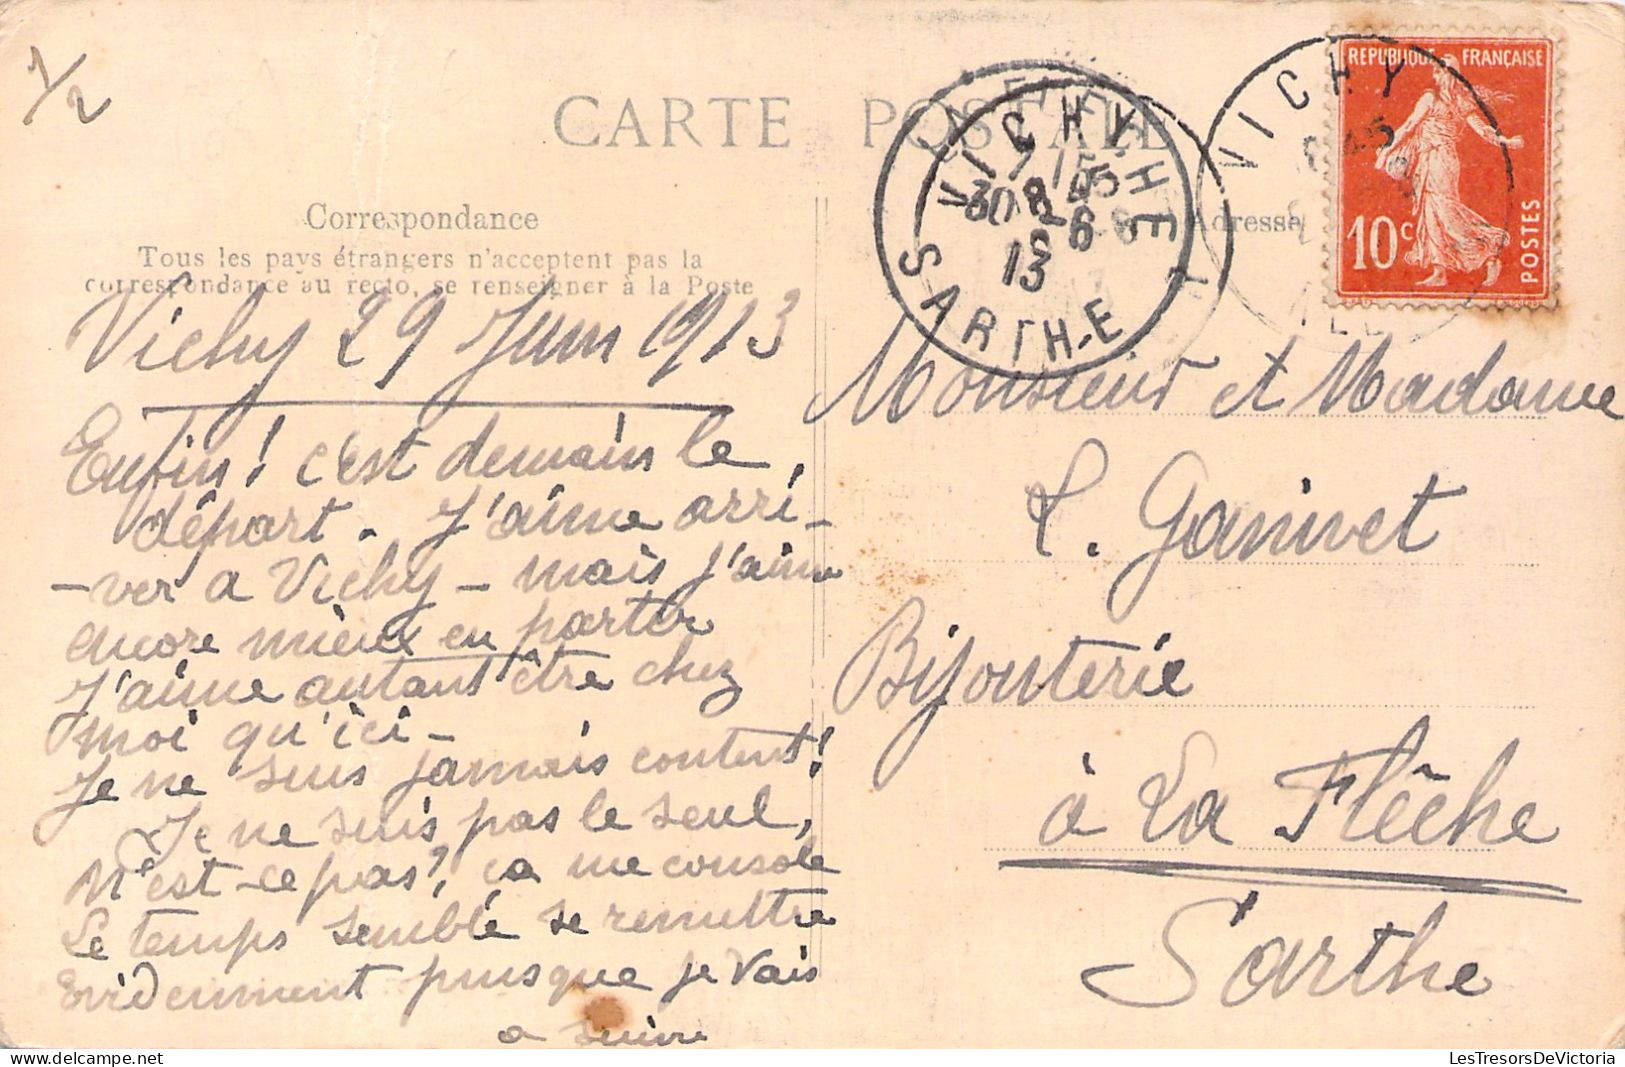 1/2
CARTE POSTALE
Correspondance
Tous les pays étrangers n'acceptent pas la
correspondance au recto, se renseigner à la Poste
Vichy 29 Juin 1913
Enfin! c'est demain le
départ. J'aime arri-
-ver a Vichy - mais j'aime
encore mieux en partir
J'aime autant être chez
moi qu'ici -
Je ne suis jamais content!
Je ne suis pas le seul,
N'est-ce pas?, ça me console
Le temps semble se remettre
Evidemment puisque je vais
a suivre
VICHY
SARTHE
13
Adresse
VICHY
REPUBLIQUE FRANÇAISE
10c
POSTES
Monsieur et Madame
L. Ganivet
Bijouterie
à La Flêche
Sarthe
LesTresorsDeVictoria